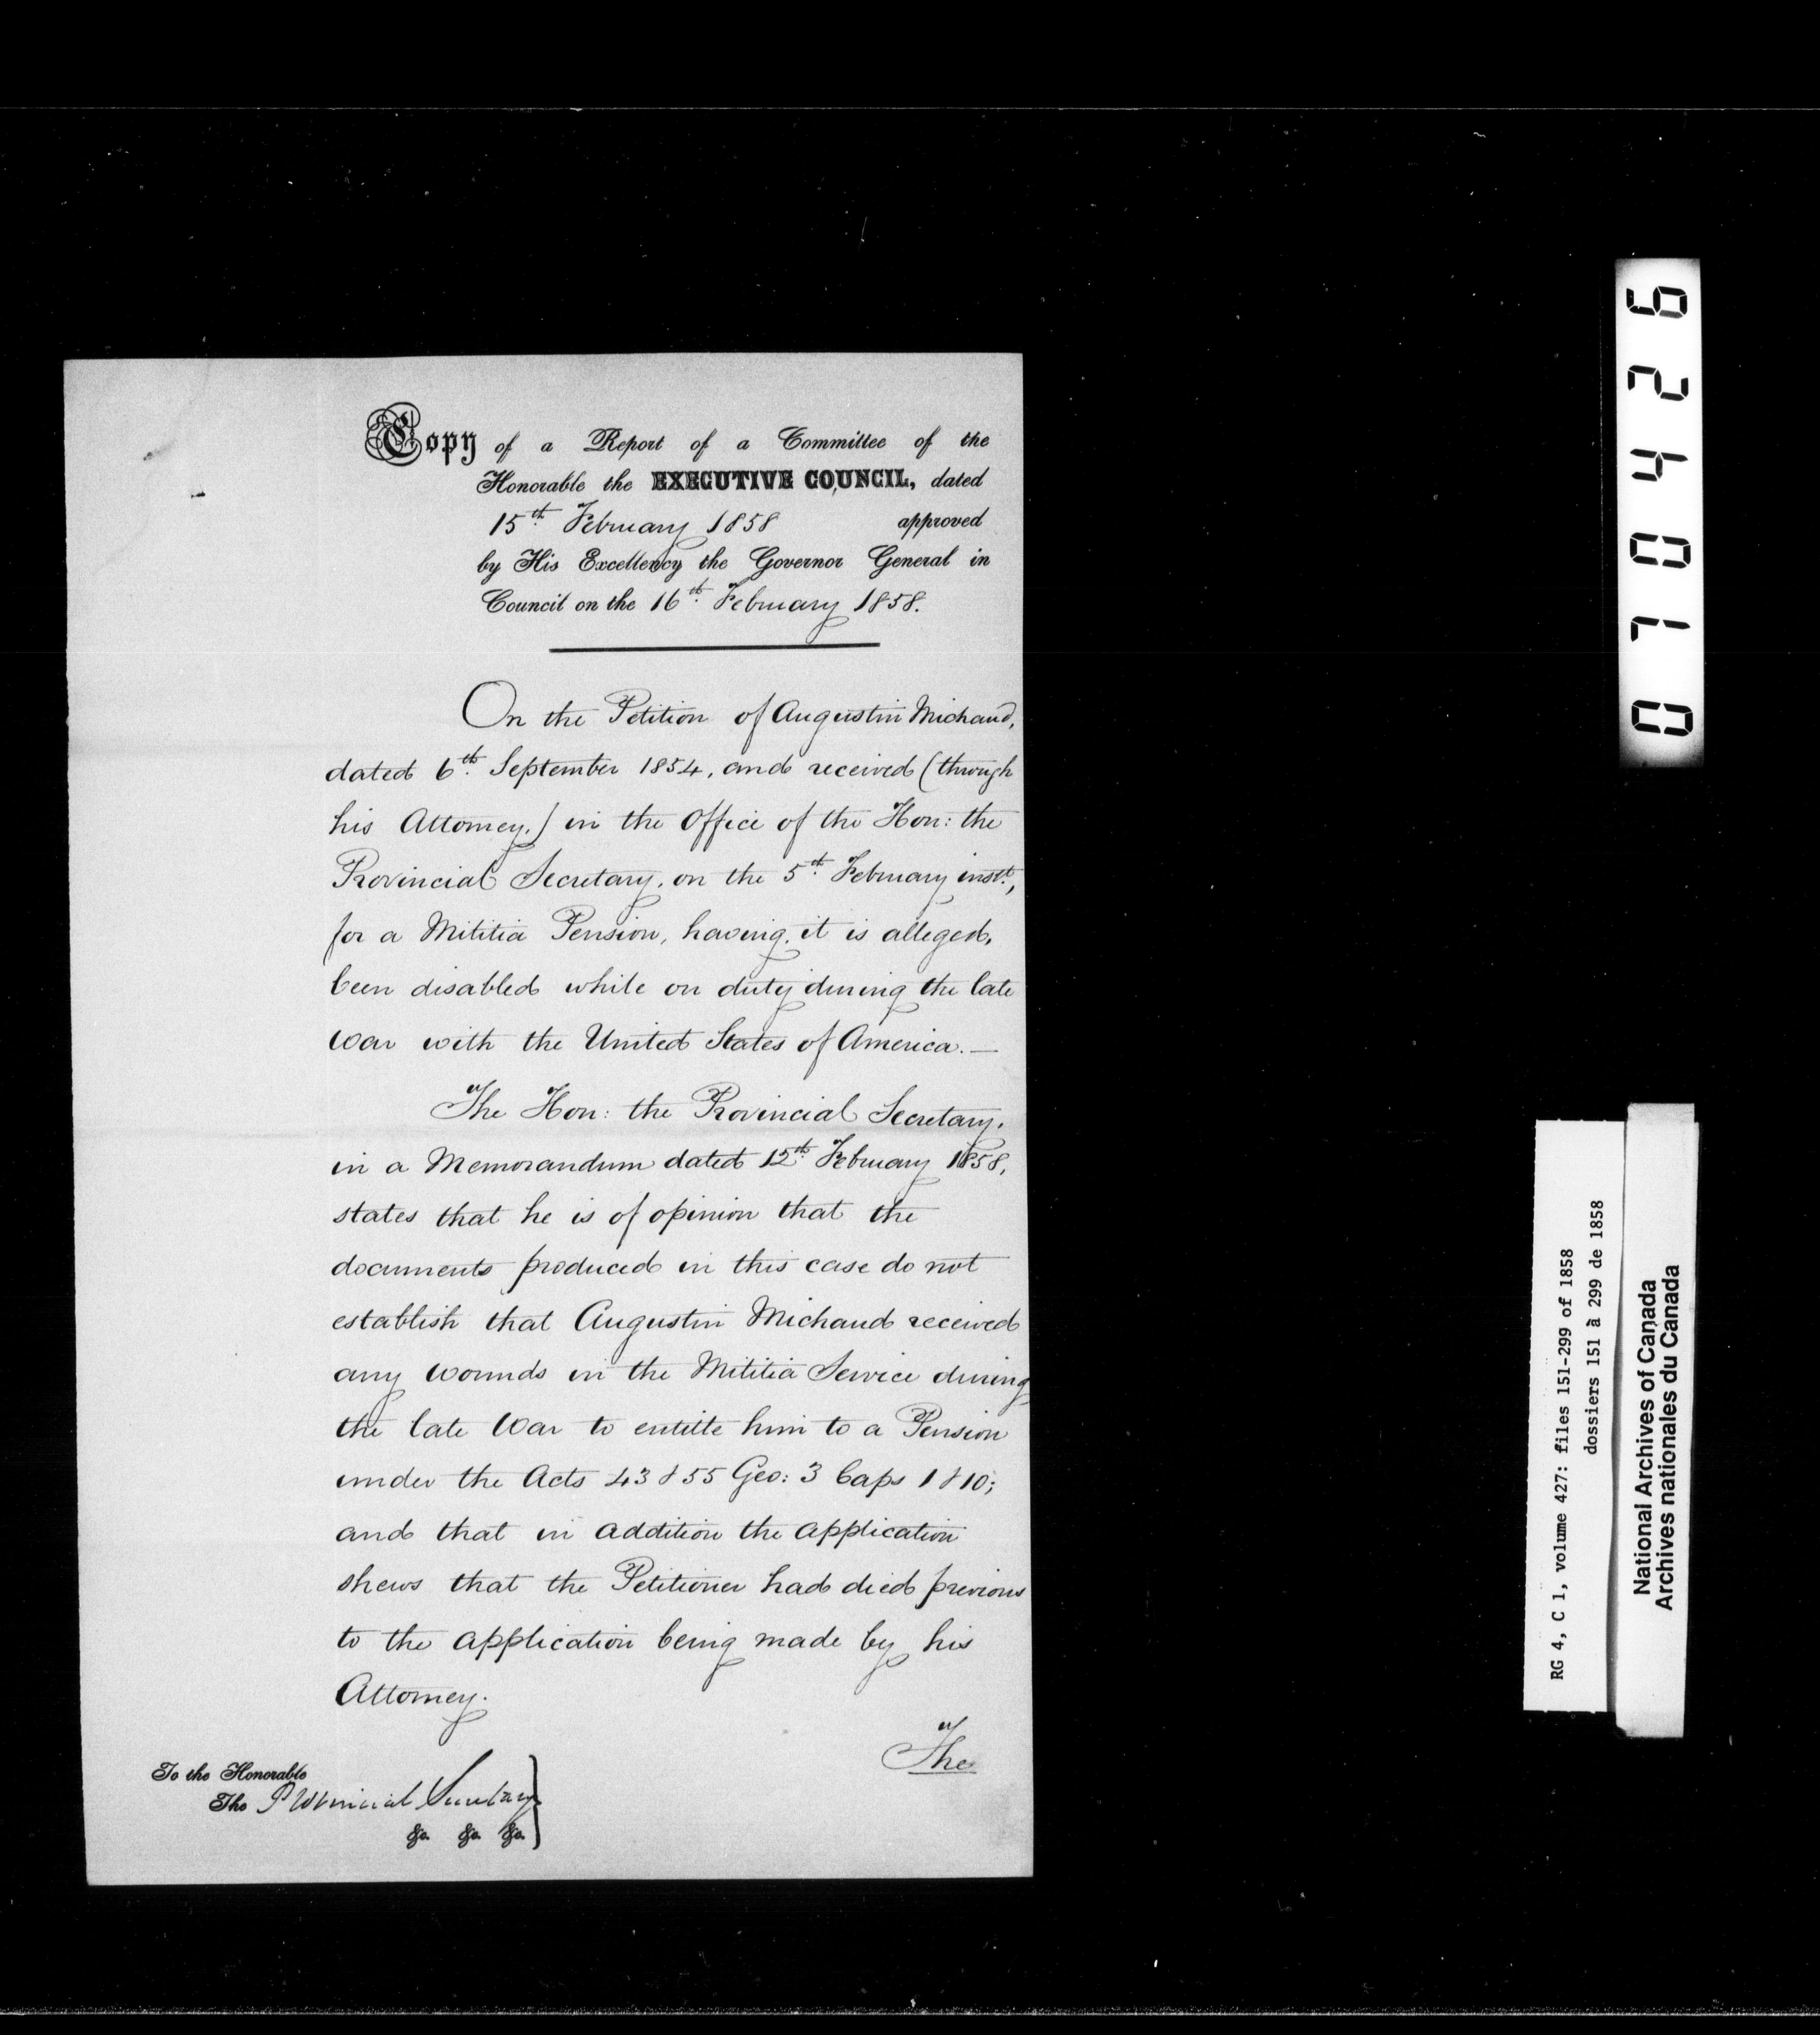 Copy of a Report of a Committee of the
Honorable the EXECUTIVE COUNCIL, dated
15th. February 1858 approved
by His Excellency the Governor General in
Council on the 16th. February 1858.
On the Petition of Augustin Michaud,
dated 6th. September 1854, and received (through
his Attorney,) in the Office of the Hon: the
Provincial Secretary, on the 5th. February inst.,
for a Militia Pension, having, it is alleged,
been disabled while on duty during the late
War with the United States of America.—
The Hon: the Provincial Secretary,
in a Memorandum dated 12th. February 1858,
states that he is of opinion that the
documents produced in this case do not
establish that Augustin Michaud received
any wounds in the Militia Service during
the late War to entitle him to a Pension
under the Acts 43 & 55 Geo: 3 Caps 1 & 10;
and that in addition the application
shews that the Petitioner had died previous
to the application being made by his
Attorney.
The
To the Honorable
The Provincial Secretary
&c. &c. &c.
070426
RG 4, C 1, volume 427: files 151-299 of 1858
dossiers 151 à 299 de 1858
National Archives of Canada
Archives nationales du Canada